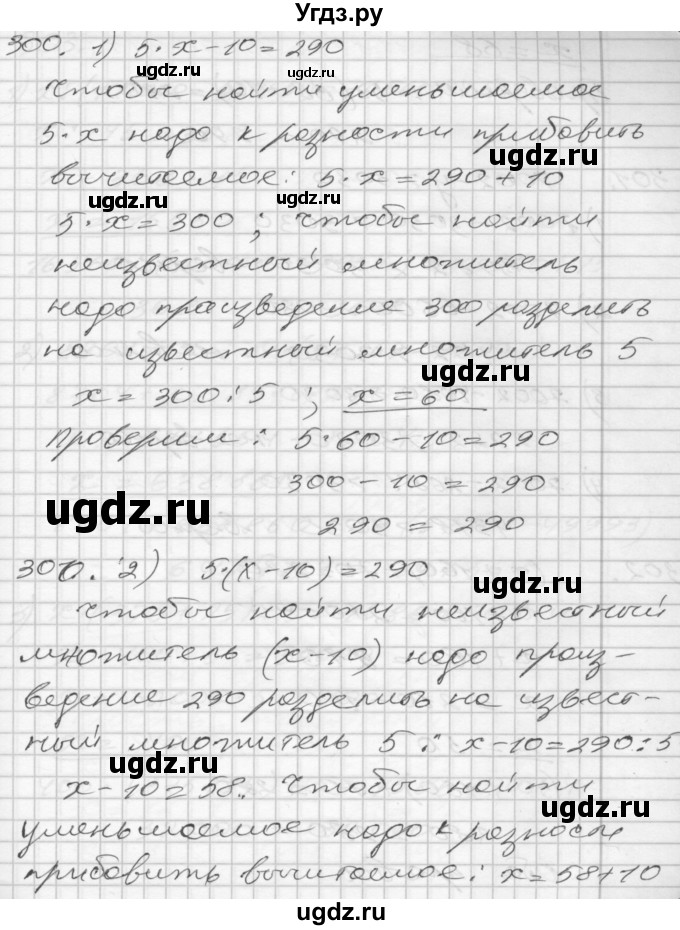 Угдз.ру
300. 1) 5·x-10=290
ugdz.ru ugdz.ru
Чтобы найти уменьшаемое
5·x надо к разности прибавить
ugdz.ru
вычитаемое: 5·x=290+10
ugdz.ru ugdz.ru
5·x=300; Чтобы найти
неизвестный множитель
надо произведение 300 разделить
на известный множитель 5
ugdz.ru
x=300:5; x=60
Проверим: 5·60-10=290
300-10=290
ugdz.ru
290=290
300. 2) 5·(x-10)=290
Чтобы найти неизвестный
множитель (x-10) надо произ-
ведение 290 разделить на извест-
ный множитель 5: x-10=290:5
ugdz.ru
x-10=58. Чтобы найти
ugdz.ru
уменьшаемое надо к разности
прибавить вычитаемое: x=58+10
ugdz.ru